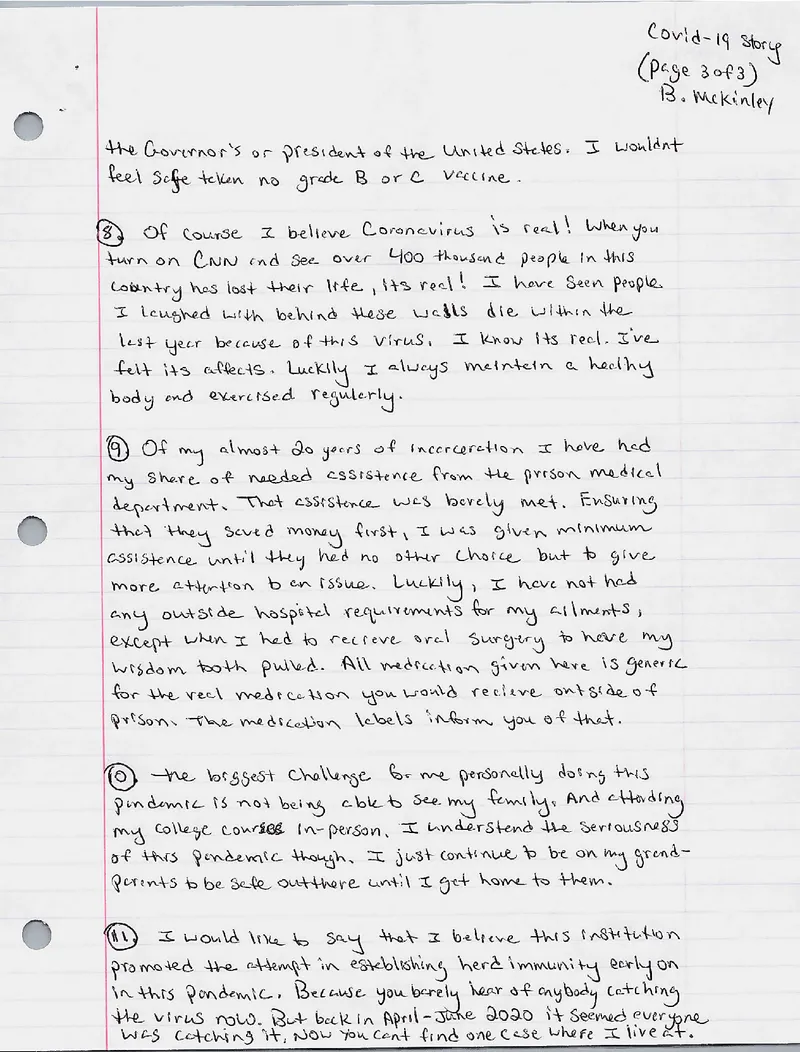 Covid-19 Story
(page 3 of 3)
B. McKinley
the Governor's or president of the United States. I wouldnt
feel safe taken no grade B or C vaccine.
8. Of course I believe Coronavirus is real! When you
turn on CNN and see over 400 thousand people in this
country has lost their life, its real! I have seen people
I laughed with behind these walls die within the
last year because of this virus. I know its real. I've
felt its affects. Luckily I always maintain a healthy
body and exercised regularly.
9 Of my almost 20 years of incarceration I have had
my share of needed assistence from the prison medical
department. That assistence was barely met. Ensuring
that they saved money first, I was given minimum
assistence until they had no other choice but to give
more attention to an issue. Luckily, I have not had
any outside hospital requirements for my ailments,
except when I had to recieve oral surgery to have my
wisdom tooth pulled. All medication given here is generic
for the real medication you would recieve outside of
prison. The medication labels inform you of that.
10 The biggest challenge for me personally doing this
pandemic is not being able to see my family. And attending
my college courses in-person. I understand the seriousness
of this pandemic though. I just continue to be on my grand-
parents to be safe out there until I get home to them.
11. I would like to say that I believe this institution
promoted the attempt in establishing herd immunity early on
in this pandemic. Because you barely hear of anybody catching
the virus now. But back in April-June 2020 it seemed everyone
was catching it, now you cant find one case where I live at.